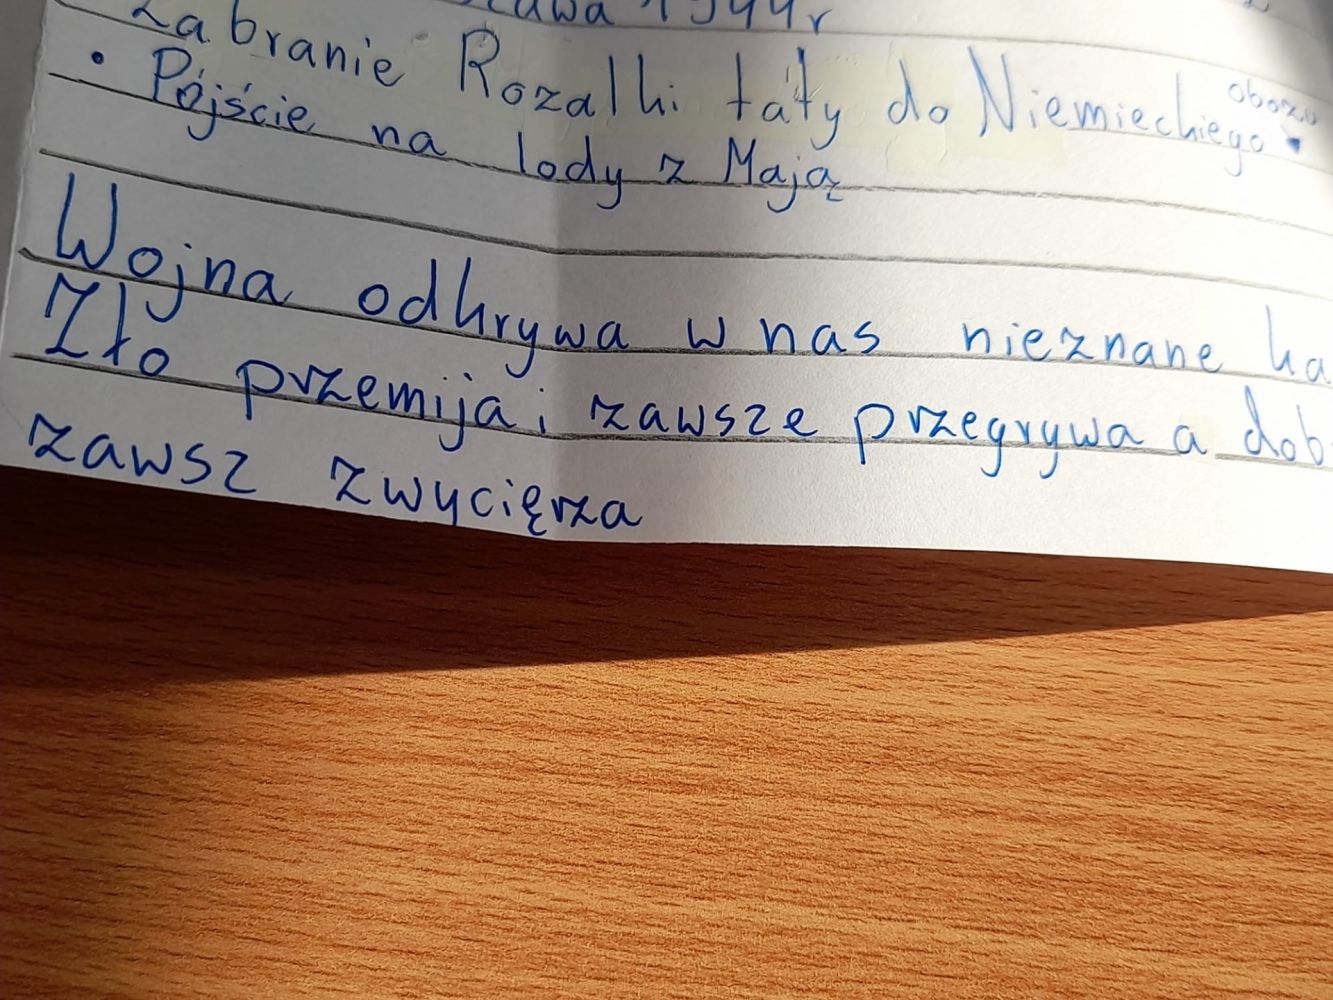 1944r
Zabranie Rozalki taty do Niemieckiego obozu
• Pójście na lody z Mają
Wojna odkrywa w nas nieznane
Zło przemija i zawsze przegrywa a
zawsz zwycięrza